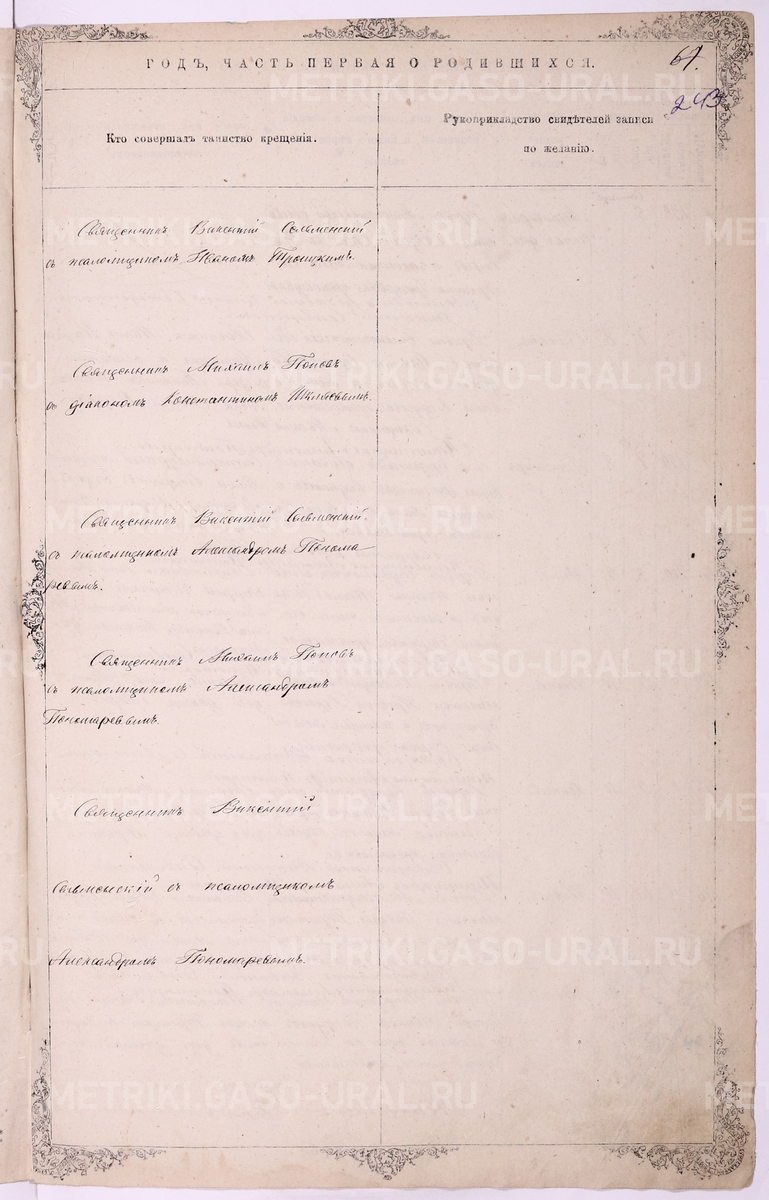 ГОДЪ, ЧАСТЬ ПЕРВАЯ О РОДИВШИХСЯ.
67.
243
Кто совершалъ таинство крещенія.
Рукоприкладство свидѣтелей записи
по желанію.
Священникъ Викентій Сельменскій
съ псаломщикомъ Иваномъ Троицкимъ.
Священникъ Михаилъ Поповъ
съ діакономъ Константиномъ
Священникъ Викентій Сельменскій
съ псаломщикомъ Александромъ Понома
ревымъ.
Священникъ Михаилъ Поповъ
съ псаломщикомъ Александромъ
Пономаревымъ.
Священникъ Викентій
Сельменскій съ псаломщикомъ
Александромъ Пономаревымъ.
METRIKI.GASO-URAL.RU